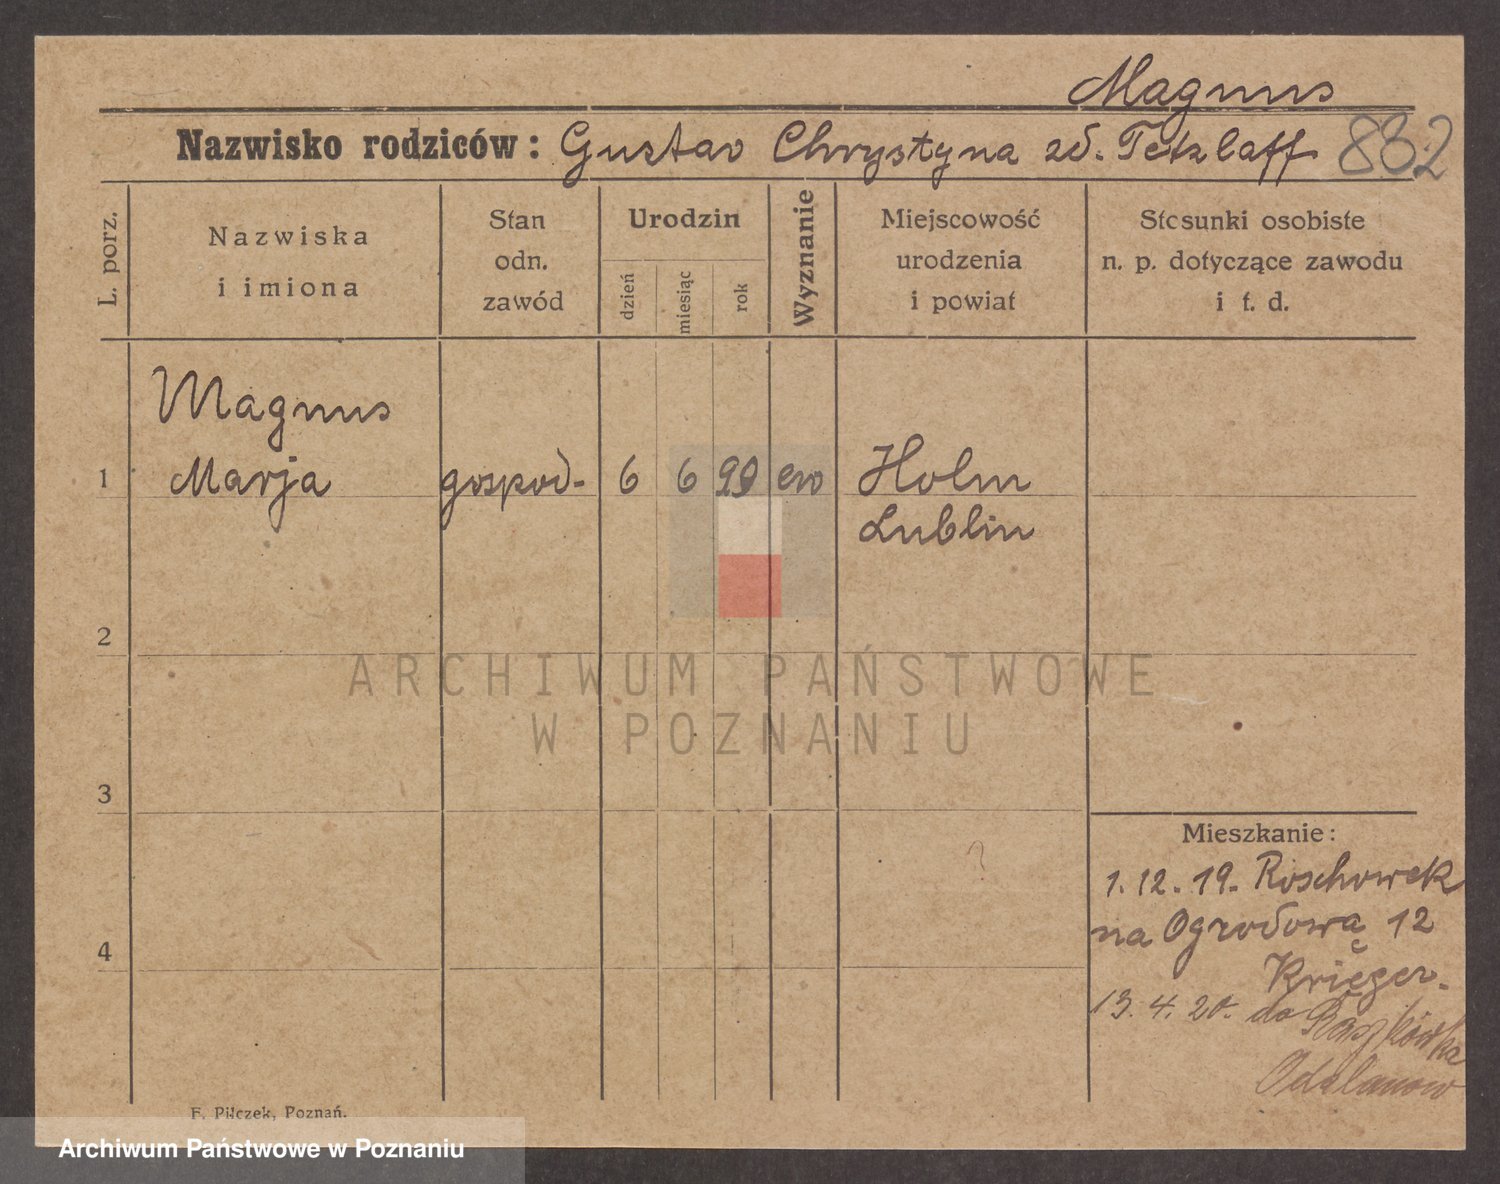 Magnus
Nazwisko rodziców: Gustav Chrystyna zd. Tetzlaff 832
L. porz.
Nazwiska
i imiona
Stan
odn.
zawód
Urodzin
dzień
miesiąc
rok
Wyznanie
Miejscowość
urodzenia
i powiat
Stosunki osobiste
n. p. dotyczące zawodu
i t. d.
Magnus
1 Marja gospod- 6 6 99 ew Holm
Lublin
2
3
4
Mieszkanie:
1. 12. 19. Roschowek
na Ogrodową 12
Krieger.
13. 4. 20. do Raszkówka
Odolanow
F. Pilczek, Poznań.
ARCHIWUM PAŃSTWOWE
W POZNANIU
Archiwum Państwowe w Poznaniu